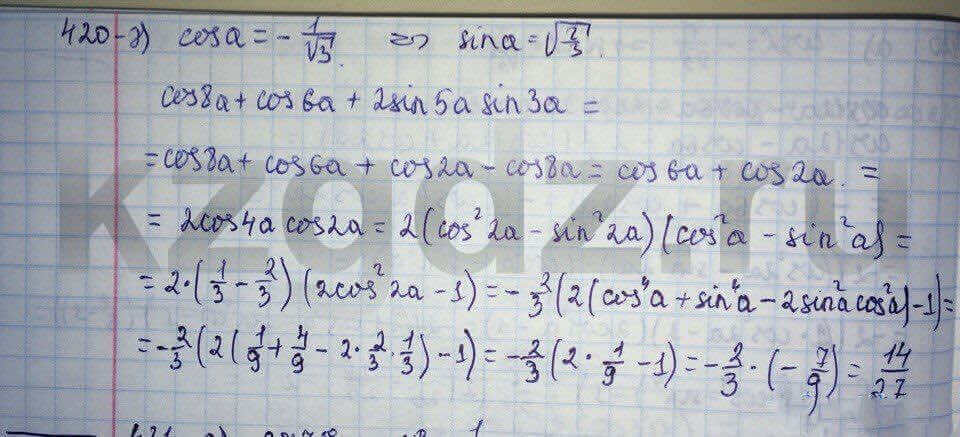 420-г) cos a = -1/√3. => sin a = √(2/3).
cos8a + cos6a + 2sin5a sin3a =
= cos8a + cos6a + cos2a - cos8a = cos6a + cos2a. =
= 2cos4a cos2a = 2(cos²2a - sin²2a)(cos²a - sin²a) =
= 2·(1/3 - 2/3)(2cos²2a - 1) = -2/3(2(cos⁴a + sin⁴a - 2sin²a cos²a) - 1) =
= -2/3(2(1/9 + 4/9 - 2·2/3·1/3) - 1) = -2/3(2·1/9 - 1) = -2/3·(-7/9) = 14/27
kzgdz.ru